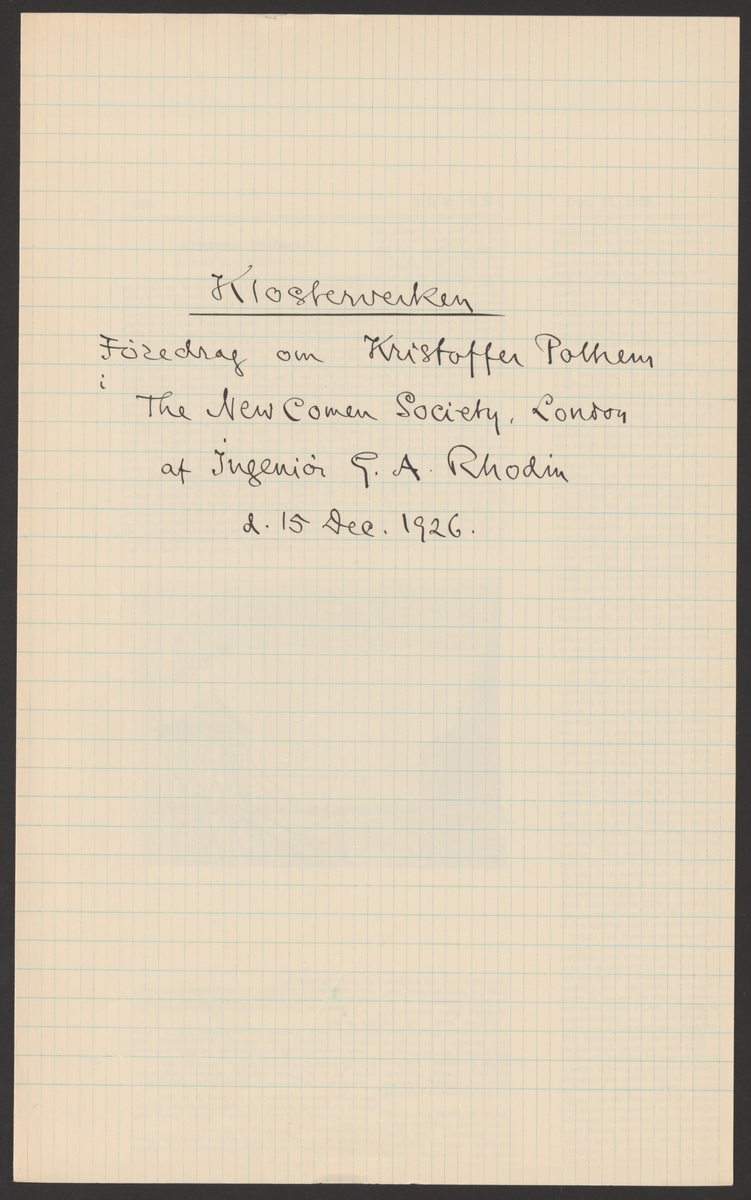 Klosterverken
Föredrag om Kristoffer Polhem
i
The New Comen Society, London
af Ingeniör G. A. Rhodin
d. 15 Dec. 1926.